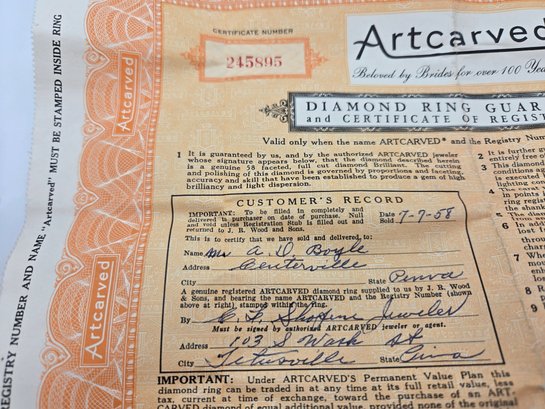 CERTIFICATE NUMBER
245895
Artcarved
Beloved by Brides for over 100 Yea
DIAMOND RING GUAR
and CERTIFICATE OF REGIST
Valid only when the name ARTCARVED* and the Registry Number
1 It is guaranteed by us, and by the authorized ARTCARVED jeweler
whose signature appears below, that the diamond described herein
is a genuine 58 faceted, full cut diamond. The cutting
and polishing of this diamond is governed by proportions and faceting,
accuracy and skill that have been established to produce a gem of high
brilliancy and light dispersion.
CUSTOMER'S RECORD
IMPORTANT: To be filled in completely and
delivered to purchaser on date of purchase. Null
and void unless Registration Stub is filled out and
returned to J. R. Wood and Sons.
Date Sold 7-7-58
This is to certify that we have sold and delivered to:
Name Mr A. D. Boyle
Address Centerville
City State Penna
A genuine registered ARTCARVED diamond ring supplied to us by J. R. Wood
& Sons, and bearing the name ARTCARVED and the Registry Number (shown
above at right), stamped within the ring.
By Jeweler
Must be signed by authorized ARTCARVED jeweler or agent.
Address 103 S Wash St
City Titusville State
IMPORTANT: Under ARTCARVED'S Permanent Value Plan this
diamond ring can be traded in at any time at its full retail value, less
tax, current at time of exchange, toward the purchase of an ART-
CARVED diamond of equal additional value, provided none of the original
2 It is further g
entirely free o
REGISTRY NUMBER AND NAME "Artcarved" MUST BE STAMPED INSIDE RING
Artcarved
Artcarved
Artcarved